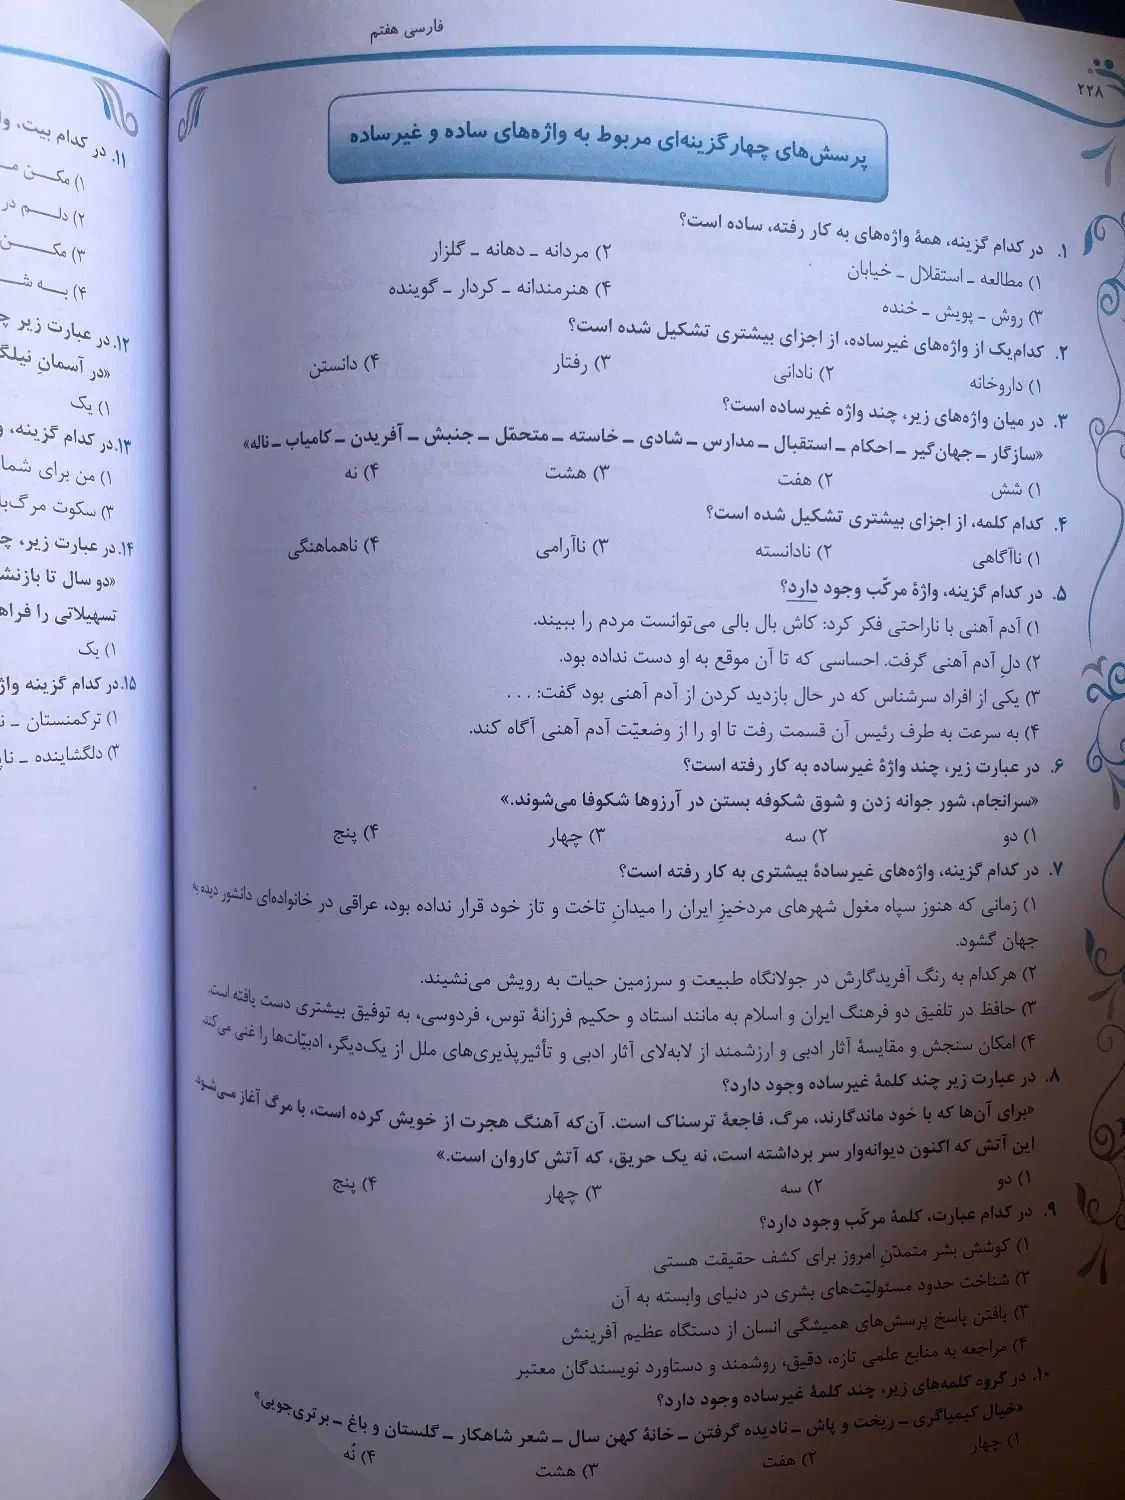 فارسی هفتم
۲۲۸
پرسش‌های چهارگزینه‌ای مربوط به واژه‌های ساده و غیرساده
۱. در کدام گزینه، همهٔ واژه‌های به کار رفته، ساده است؟
۱) مطالعه ـ استقلال ـ خیابان ۲) مردانه ـ دهانه ـ گلزار
۳) روش ـ پویش ـ خنده ۴) هنرمندانه ـ کردار ـ گوینده
۲. کدام‌یک از واژه‌های غیرساده، از اجزای بیشتری تشکیل شده است؟
۱) داروخانه ۲) نادانی ۳) رفتار ۴) دانستن
۳. در میان واژه‌های زیر، چند واژه غیرساده است؟
«سازگار ـ جهان‌گیر ـ احکام ـ استقبال ـ مدارس ـ شادی ـ خاسته ـ متحمّل ـ جنبش ـ آفریدن ـ کامیاب ـ ناله»
۱) شش ۲) هفت ۳) هشت ۴) نه
۴. کدام کلمه، از اجزای بیشتری تشکیل شده است؟
۱) ناآگاهی ۲) نادانسته ۳) ناآرامی ۴) ناهماهنگی
۵. در کدام گزینه، واژهٔ مرکّب وجود دارد؟
۱) آدم آهنی با ناراحتی فکر کرد: کاش بال بالی می‌توانست مردم را ببیند.
۲) دلِ آدم آهنی گرفت. احساسی که تا آن موقع به او دست نداده بود.
۳) یکی از افراد سرشناس که در حال بازدید کردن از آدم آهنی بود گفت: . . .
۴) به سرعت به طرف رئیس آن قسمت رفت تا او را از وضعیّت آدم آهنی آگاه کند.
۶. در عبارت زیر، چند واژهٔ غیرساده به کار رفته است؟
«سرانجام، شور جوانه زدن و شوق شکوفه بستن در آرزوها شکوفا می‌شوند.»
۱) دو ۲) سه ۳) چهار ۴) پنج
۷. در کدام گزینه، واژه‌های غیرسادهٔ بیشتری به کار رفته است؟
۱) زمانی که هنوز سپاه مغول شهرهای مردخیزِ ایران را میدانِ تاخت و تاز خود قرار نداده بود، عراقی در خانواده‌ای دانشور دیده به
جهان گشود.
۲) هرکدام به رنگ آفریدگارش در جولانگاه طبیعت و سرزمین حیات به رویش می‌نشیند.
۳) حافظ در تلفیق دو فرهنگ ایران و اسلام به مانند استاد و حکیم فرزانهٔ توس، فردوسی، به توفیق بیشتری دست یافته است.
۴) امکان سنجش و مقایسهٔ آثار ادبی و ارزشمند از لابه‌لای آثار ادبی و تأثیرپذیری‌های ملل از یک‌دیگر، ادبیّات‌ها را غنی می‌کند.
۸. در عبارت زیر چند کلمهٔ غیرساده وجود دارد؟
«برای آن‌ها که با خود ماندگارند، مرگ، فاجعهٔ ترسناک است. آن‌که آهنگ هجرت از خویش کرده است، با مرگ آغاز می‌شود
این آتش که اکنون دیوانه‌وار سر برداشته است، نه یک حریق، که آتش کاروان است.»
۱) دو ۲) سه ۳) چهار ۴) پنج
۹. در کدام عبارت، کلمهٔ مرکّب وجود دارد؟
۱) کوشش بشر متمدّنِ امروز برای کشف حقیقت هستی
۲) شناخت حدود مسئولیّت‌های بشری در دنیای وابسته به آن
۳) یافتن پاسخ پرسش‌های همیشگی انسان از دستگاه عظیم آفرینش
۴) مراجعه به منابع علمی تازه، دقیق، روشمند و دستاورد نویسندگان معتبر
۱۰. در گروه کلمه‌های زیر، چند کلمهٔ غیرساده وجود دارد؟
«خیال کیمیاگری ـ ریخت و پاش ـ نادیده گرفتن ـ خانهٔ کهن سال ـ شعر شاهکار ـ گلستان و باغ ـ برتری‌جویی»
۱) چهار ۲) هفت ۳) هشت ۴) نُه
۱۱. در کدام بیت،
۱) مکـن
۲) دلـم در
۳) مکـن
۴) بـه
۱۲. در عبارت زیر
«در آسمانِ
۱) یک
۱۳. در کدام گزینه،
۱) من برای شما
۳) سکوت
۱۴. در عبارت زیر،
«دو سال تا
تسهیلاتی را
۱) یک
۱۵. در کدام گزینه
۱) ترکمنستان ـ
۳) دلگشاینده ـ